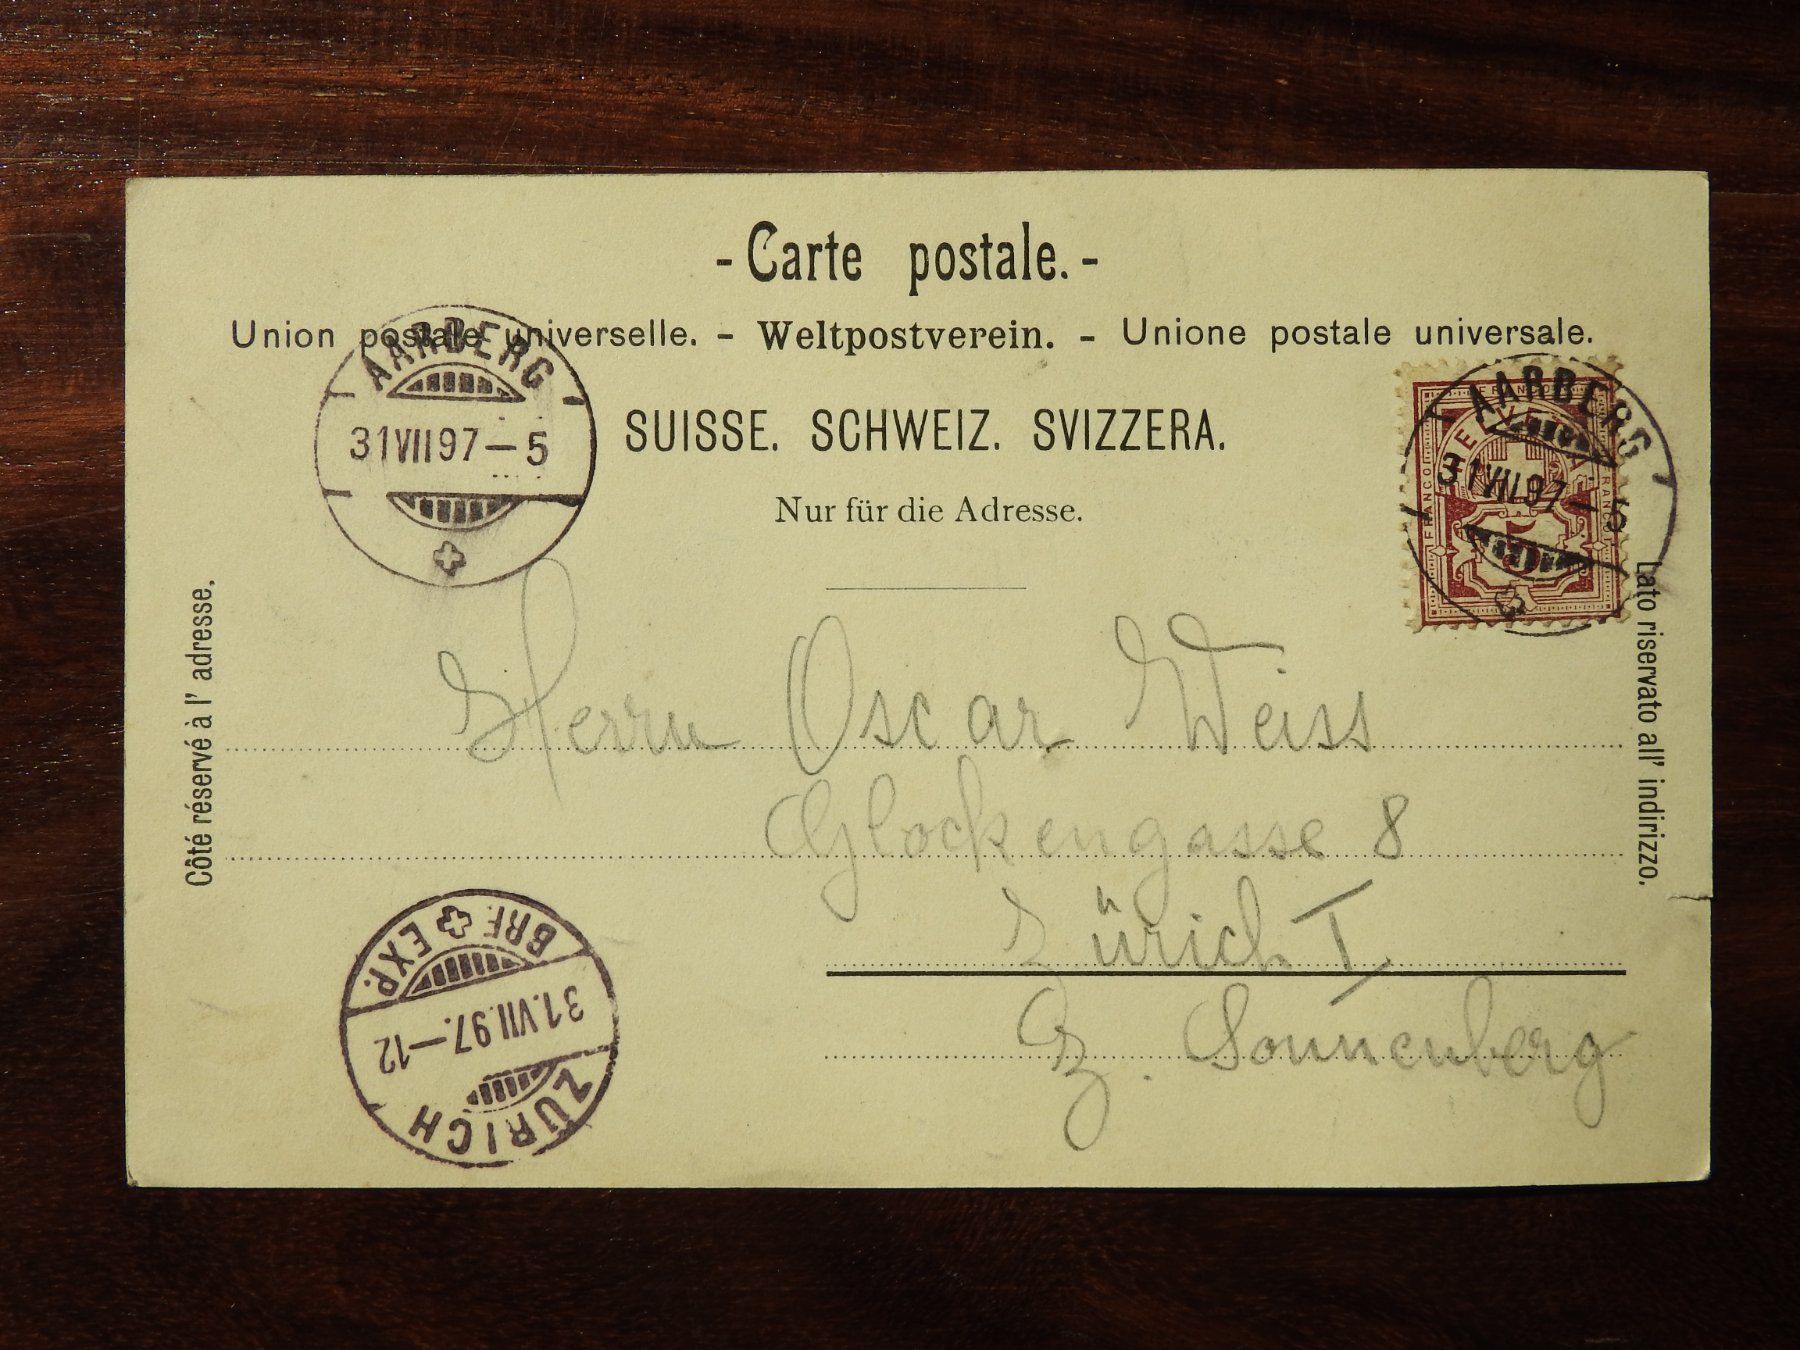 - Carte postale. -
Union postale universelle. - Weltpostverein. - Unione postale universale.
SUISSE. SCHWEIZ. SVIZZERA.
Nur für die Adresse.
Côté réservé à l' adresse.
Lato riservato all' indirizzo.
AARBERG
31 VII 97 - 5
HELVETIA
FRANCO
FRANCO
FRANCO
5
AARBERG
31 VII 97 - 5
Herrn Oscar Weiss
Glockengasse 8
Zürich I
z. Sonnenberg
ZÜRICH
31.VII.97.-12
BRF. EXP.